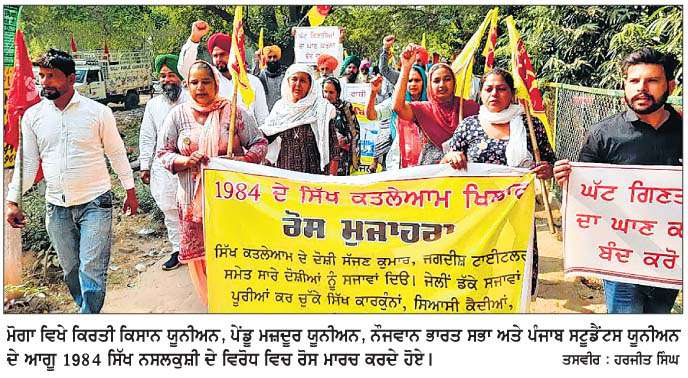 ਘੱਟ ਗਿਣਤੀਆਂ
ਦਾ ਘਾਣ ਕਰਨਾ
1984 ਦੇ ਸਿੱਖ ਕਤਲੇਆਮ ਖਿਲਾਫ
ਰੋਸ ਮੁਜਾਹਰਾ
ਸਿੱਖ ਕਤਲੇਆਮ ਦੇ ਦੋਸ਼ੀ ਸੱਜਣ ਕੁਮਾਰ, ਜਗਦੀਸ਼ ਟਾਈਟਲਰ
ਸਮੇਤ ਸਾਰੇ ਦੋਸ਼ੀਆਂ ਨੂੰ ਸਜਾਵਾਂ ਦਿਓ। ਜੇਲੀਂ ਡੱਕੇ ਸਜਾਵਾਂ
ਪੂਰੀਆਂ ਕਰ ਚੁੱਕੇ ਸਿੱਖ ਕਾਰਕੁੰਨਾਂ, ਸਿਆਸੀ ਕੈਦੀਆਂ,
ਘੱਟ ਗਿਣਤ
ਦਾ ਘਾਣ ਕ
ਬੰਦ ਕਰੋ
ਮੋਗਾ ਵਿਖੇ ਕਿਰਤੀ ਕਿਸਾਨ ਯੂਨੀਅਨ, ਪੇਂਡੂ ਮਜ਼ਦੂਰ ਯੂਨੀਅਨ, ਨੌਜਵਾਨ ਭਾਰਤ ਸਭਾ ਅਤੇ ਪੰਜਾਬ ਸਟੂਡੈਂਟਸ ਯੂਨੀਅਨ
ਦੇ ਆਗੂ 1984 ਸਿੱਖ ਨਸਲਕੁਸ਼ੀ ਦੇ ਵਿਰੋਧ ਵਿਚ ਰੋਸ ਮਾਰਚ ਕਰਦੇ ਹੋਏ।
ਤਸਵੀਰ : ਹਰਜੀਤ ਸਿੰਘ